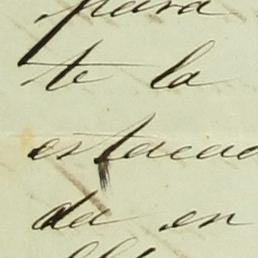 para
te la
estacad
da en